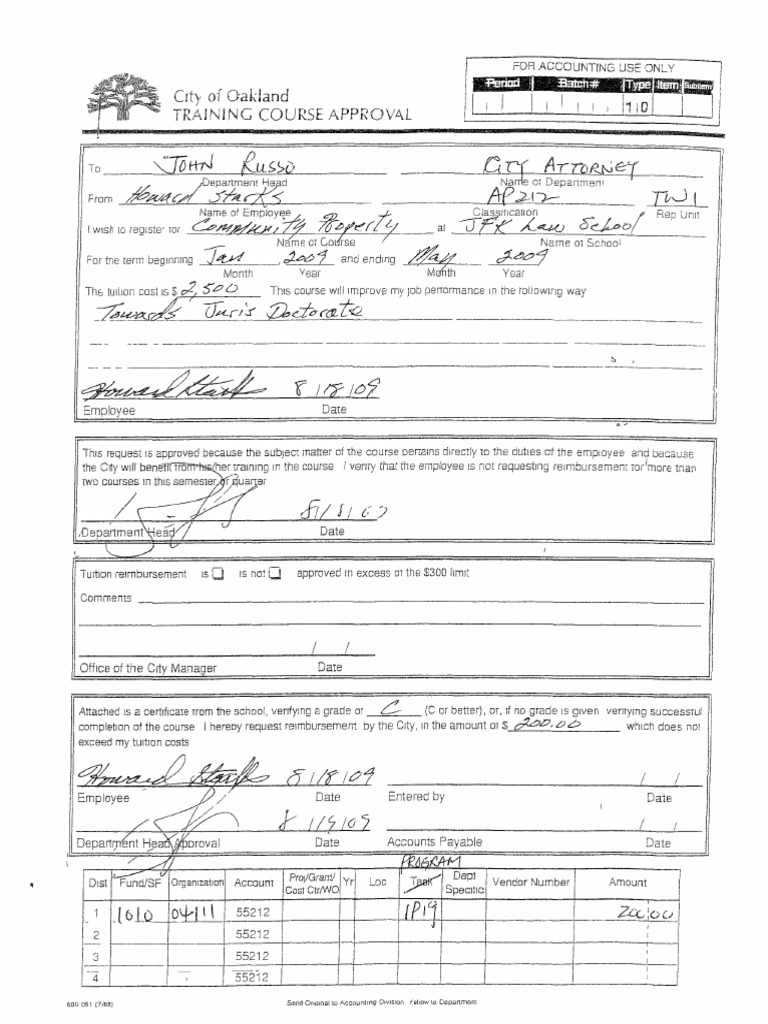 FOR ACCOUNTING USE ONLY
Period Batch # Type Item Subitem
1 0
City of Oakland
TRAINING COURSE APPROVAL
To JOHN RUSSO CITY ATTORNEY
Department Head Name of Department
From Howard Starks AP212 TW1
Name of Employee Classification Rep Unit
I wish to register for Community Property at JFK Law School
Name of Course Name of School
For the term beginning Jan 2009 and ending May 2009
Month Year Month Year
The tuition cost is $ 2,500 This course will improve my job performance in the following way
Towards Juris Doctorate
Howard Starks 8/18/09
Employee Date
This request is approved because the subject matter of the course pertains directly to the duties of the employee and because
the City will benefit from his/her training in the course I verify that the employee is not requesting reimbursement for more than
two courses in this semester or quarter
Department Head Date
Tuition reimbursement is ☐ is not ☐ approved in excess of the $300 limit
Comments
/ /
Office of the City Manager Date
Attached is a certificate from the school, verifying a grade of C (C or better), or, if no grade is given verifying successful
completion of the course I hereby request reimbursement by the City, in the amount of $ 200.00 which does not
exceed my tuition costs
Howard Starks 8/18/09 / /
Employee Date Entered by Date
8/19/09 / /
Department Head Approval Date Accounts Payable Date
PROGRAM
Dist Fund/SF Organization Account Proj/Grant/ Cost Ctr/WO Yr Loc Task Dept Specific Vendor Number Amount
1 1010 04111 55212 IP19 200.00
2 55212
3 55212
4 55212
Send Original to Accounting Division Yellow to Department